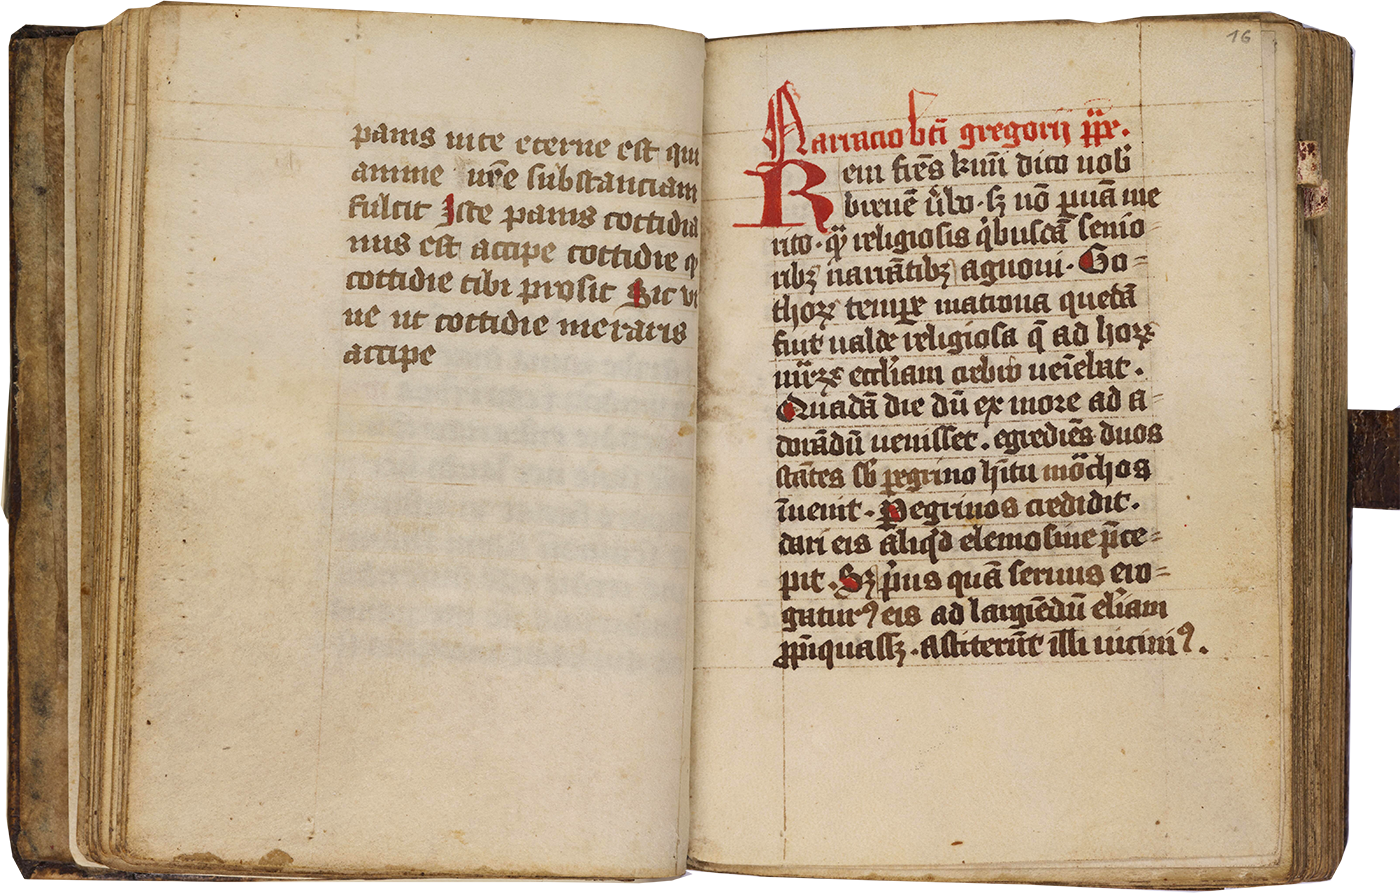 panis uite eterne est qui
anime vr̄e substanciam
fulcit Iste panis cottidia
nus est accipe cottidie q̄
cottidie tibi prosit Sic vi
ue ut cottidie merearis
accipe
16
Narracio bt̄i gregorij pp̄e.
Rem fr̄es kmī dico uob̄
breuē v̄bo · sꝫ nō ꝑuā me
rito · qr̄ religiosis q̇busdā senio
ribꝫ narrātibꝫ agnoui · Go-
thoꝝ tempe matrona quedā
fuit ualde religiosa q̄ ad horꝝ
eccl̄iam crebro ueniebat .
Quadā die dū ex more ad a-
dorādū uenisset . egrediēs duos
stātes sb̄ peregrino hītu mōchos
īuenit . Pegrinos credidit .
dari eis aliqd̄ elemosine p̄ce-
pit . Sꝫ p̄us quā seruus ero-
gaturꝰ eis ad largiēdū el̄iam
ꝓpīquassꝫ . astiterūt illi uiciniꝰ .